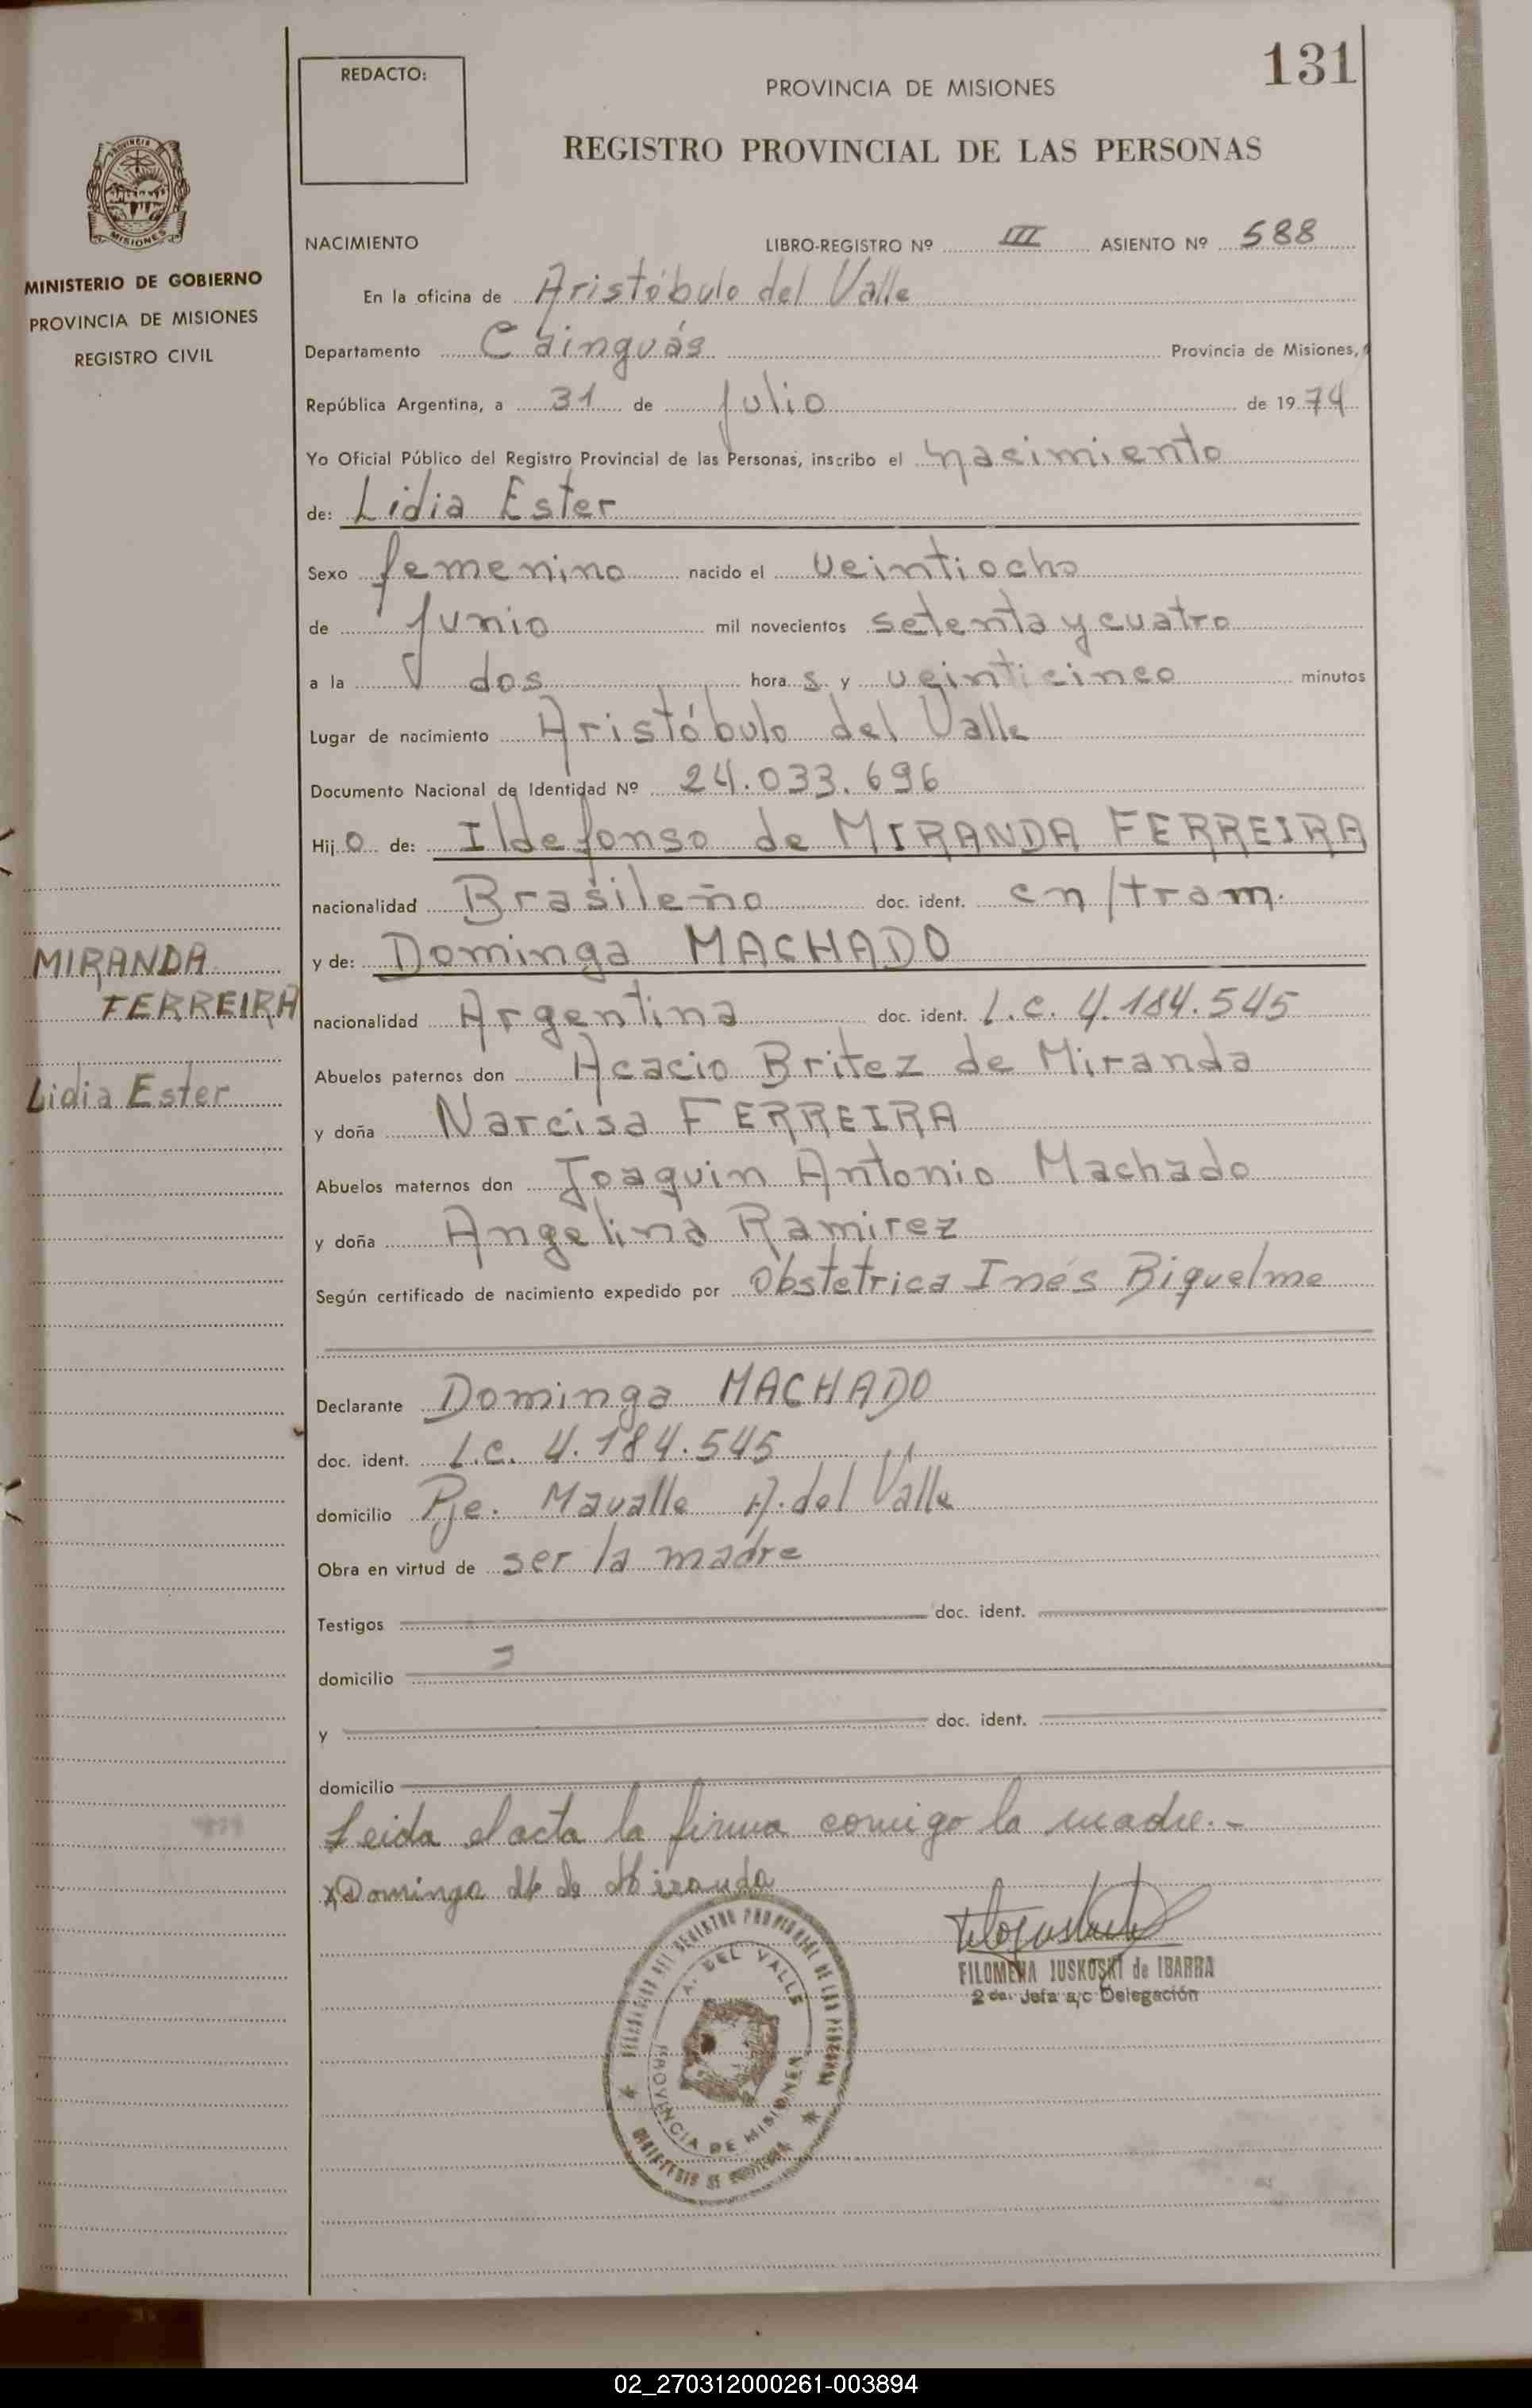 131
REDACTO:
PROVINCIA DE MISIONES
REGISTRO PROVINCIAL DE LAS PERSONAS
PROVINCIA
MISIONES
MINISTERIO DE GOBIERNO
PROVINCIA DE MISIONES
REGISTRO CIVIL
NACIMIENTO LIBRO-REGISTRO Nº III ASIENTO Nº 588
En la oficina de Aristóbulo del Valle
Departamento Cainguás Provincia de Misiones,
República Argentina, a 31 de Julio de 1974
Yo Oficial Público del Registro Provincial de las Personas, inscribo el nacimiento
de: Lidia Ester
Sexo femenino nacido el veintiocho
de Junio mil novecientos setenta y cuatro
a la dos hora s y veinticinco minutos
Lugar de nacimiento Aristóbulo del Valle
Documento Nacional de Identidad Nº 24.033.696
Hij o de: Ildefonso de MIRANDA FERREIRA
nacionalidad Brasileño doc. ident. en/tram.
MIRANDA
FERREIRA
Lidia Ester
y de: Dominga MACHADO
nacionalidad Argentina doc. ident. L.C. 4.184.545
Abuelos paternos don Acacio Britez de Miranda
y doña Narcisa FERREIRA
Abuelos maternos don Joaquin Antonio Machado
y doña Angelina Ramirez
Según certificado de nacimiento expedido por Obstetrica Inés Riquelme
Declarante Dominga MACHADO
doc. ident. L.C. 4.184.545
domicilio Pje. Mavalle A. del Valle
Obra en virtud de ser la madre
Testigos doc. ident.
domicilio
y doc. ident.
domicilio
Leida el acta la firma comigo la madre.-
x Dominga M de Miranda
FILOMENA JUSKOSKI de IBARRA
2da. Jefa a/c Delegación
DELEGACION DEL REGISTRO PROVINCIAL DE LAS PERSONAS
A. DEL VALLE
PROVINCIA DE MISIONES
02_270312000261-003894